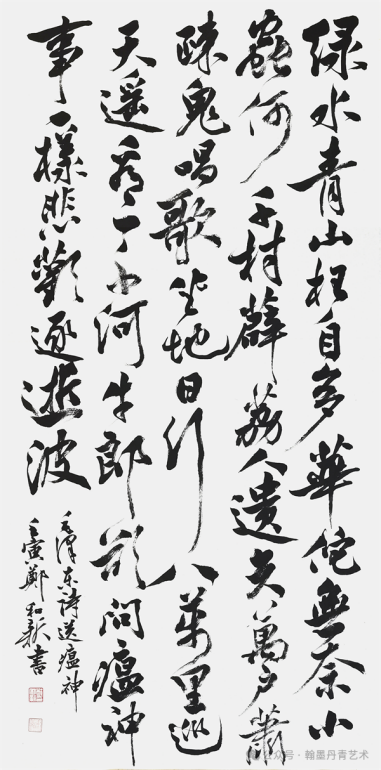 绿水青山枉自多華佗無奈小
蟲何千村薜荔人遗矢萬户蕭
疎鬼唱歌坐地日行八萬里巡
天遥看一千河牛郎欲问瘟神
事一樣悲歡逐逝波
毛澤东诗送瘟神
壬寅鄭和書
公众号·翰墨丹青艺术